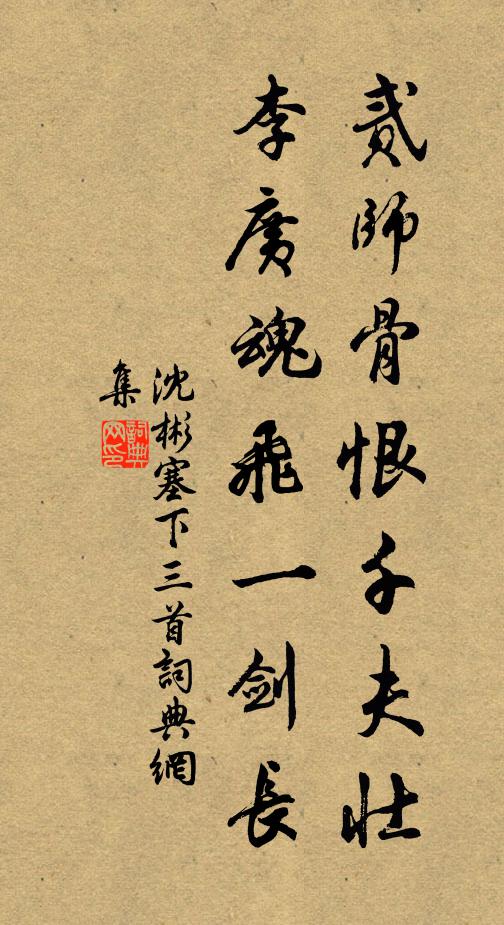 貳師骨恨千夫壯
李廣魂飛一劍長
沈彬塞下三首詞典網
集
詞典
網印